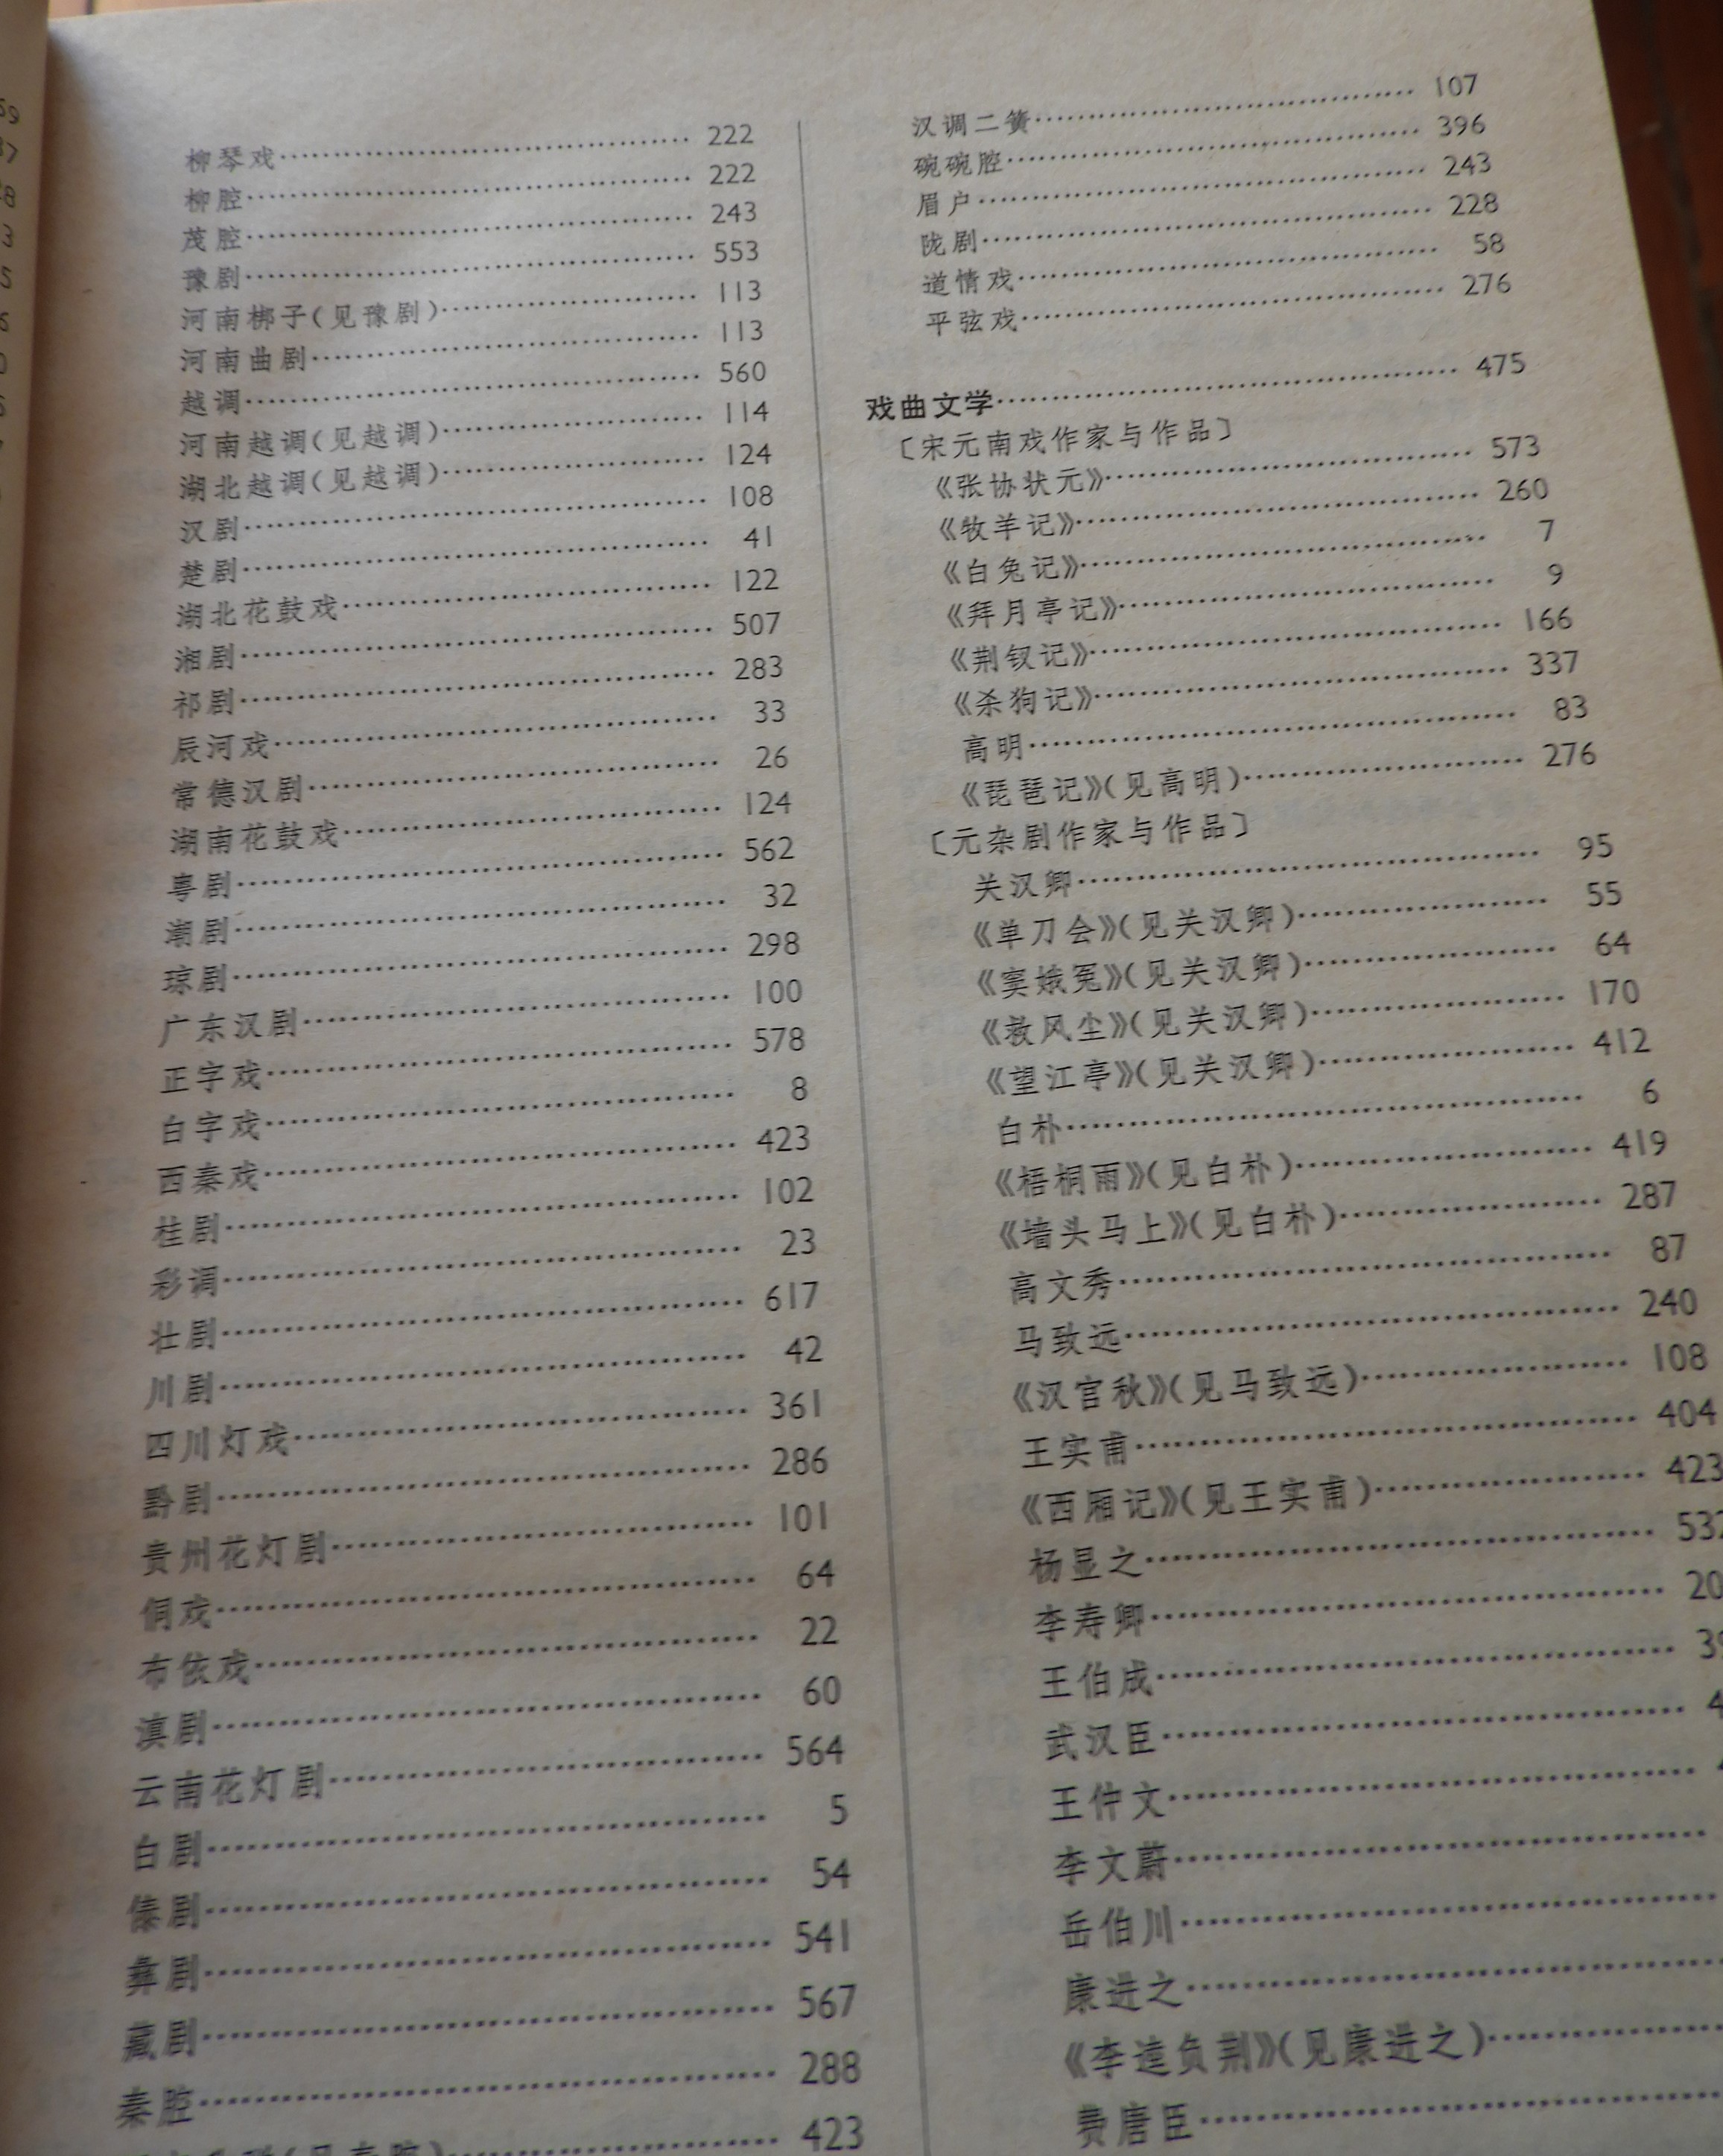 柳琴戏…………………………………… 222
柳腔……………………………………… 222
茂腔……………………………………… 243
豫剧……………………………………… 553
河南梆子(见豫剧)……………………… 113
河南曲剧………………………………… 113
越调……………………………………… 560
河南越调(见越调)……………………… 114
湖北越调(见越调)……………………… 124
汉剧……………………………………… 108
楚剧……………………………………… 41
湖北花鼓戏……………………………… 122
湘剧……………………………………… 507
祁剧……………………………………… 283
辰河戏…………………………………… 33
常德汉剧………………………………… 26
湖南花鼓戏……………………………… 124
粤剧……………………………………… 562
潮剧……………………………………… 32
琼剧……………………………………… 298
广东汉剧………………………………… 100
正字戏…………………………………… 578
白字戏…………………………………… 8
西秦戏…………………………………… 423
桂剧……………………………………… 102
彩调……………………………………… 23
壮剧……………………………………… 617
川剧……………………………………… 42
四川灯戏………………………………… 361
黔剧……………………………………… 286
贵州花灯剧……………………………… 101
侗戏……………………………………… 64
布依戏…………………………………… 22
滇剧……………………………………… 60
云南花灯剧……………………………… 564
白剧……………………………………… 5
傣剧……………………………………… 54
彝剧……………………………………… 541
藏剧……………………………………… 567
秦腔……………………………………… 288
423
汉调二簧………………………………… 107
碗碗腔…………………………………… 396
眉户……………………………………… 243
陇剧……………………………………… 228
道情戏…………………………………… 58
平弦戏…………………………………… 276
戏曲文学………………………………… 475
〔宋元南戏作家与作品〕
《张协状元》…………………………… 573
《牧羊记》……………………………… 260
《白兔记》……………………………… 7
《拜月亭记》…………………………… 9
《荆钗记》……………………………… 166
《杀狗记》……………………………… 337
高明……………………………………… 83
《琵琶记》(见高明)…………………… 276
〔元杂剧作家与作品〕
关汉卿…………………………………… 95
《单刀会》(见关汉卿)………………… 55
《窦娥冤》(见关汉卿)………………… 64
《救风尘》(见关汉卿)………………… 170
《望江亭》(见关汉卿)………………… 412
白朴……………………………………… 6
《梧桐雨》(见白朴)…………………… 419
《墙头马上》(见白朴)………………… 287
高文秀…………………………………… 87
马致远…………………………………… 240
《汉宫秋》(见马致远)………………… 108
王实甫…………………………………… 404
《西厢记》(见王实甫)………………… 423
杨显之…………………………………… 532
李寿卿…………………………………… 20
王伯成…………………………………… 39
武汉臣…………………………………… 4
王仲文……………………………………
李文蔚……………………………………
岳伯川……………………………………
康进之……………………………………
《李逵负荆》(见康进之)…………………
费唐臣……………………………………